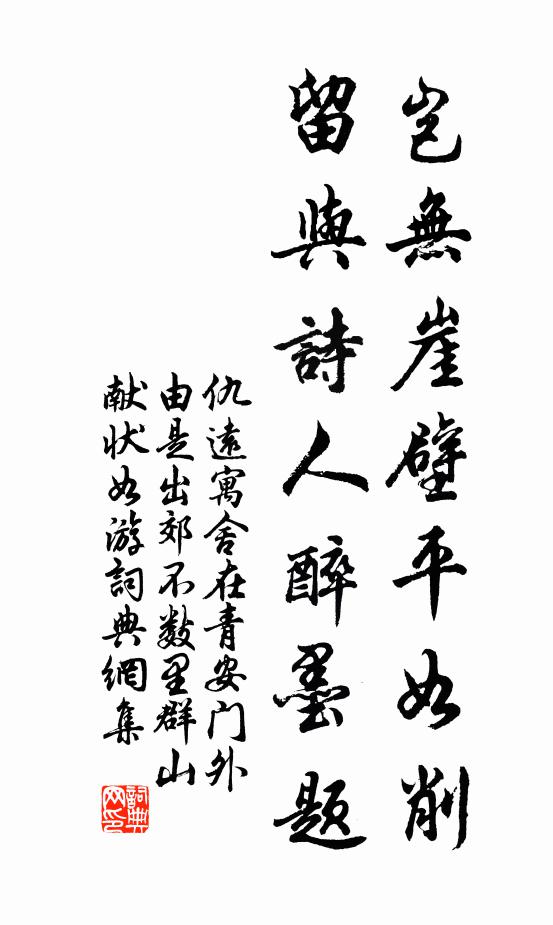 豈無崖壁平如削
留與詩人醉墨題
仇遠寓舍在青安门外
由是出郊不数里群山
献状如游詞典網集
詞典
网印